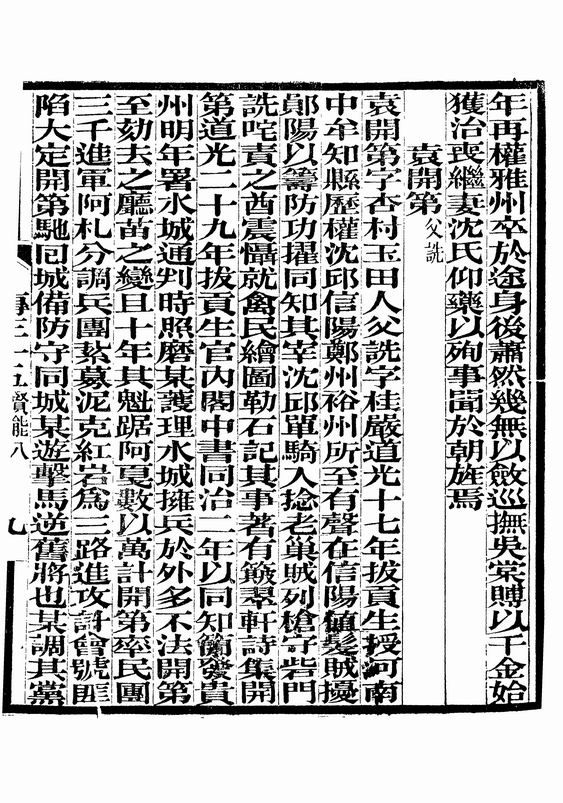 年再權雅州卒於途身後蕭然幾無以斂巡撫吳棠賻以千金始
獲治喪繼妻沈氏仰藥以殉事聞於朝旌焉
袁開第父詵
袁開第字杏村玉田人父詵字桂巖道光十七年拔貢生授河南
中牟知縣歷權沈邱信陽鄭州裕州所至有聲在信陽値髮賊擾
鄖陽以籌防功擢同知其宰沈邱單騎入捻老巢賊列槍守砦門
詵咤責之酋震懾就禽民繪圖勒石記其事著有簸翠軒詩集開
第道光二十九年拔貢生官內閣中書同治二年以同知簡發貴
州明年署水城通判時照磨某護理水城擁兵於外多不法開第
至劾去之廳苗之變且十年其魁踞阿戛數以萬計開第率民團
三千進軍阿札分調兵團紮募泥克紅岩爲三路進攻計會號匪
陷大定開第馳回城備防守同城某遊擊馬逆舊將也某調其黨
傳三十五賢能八
九